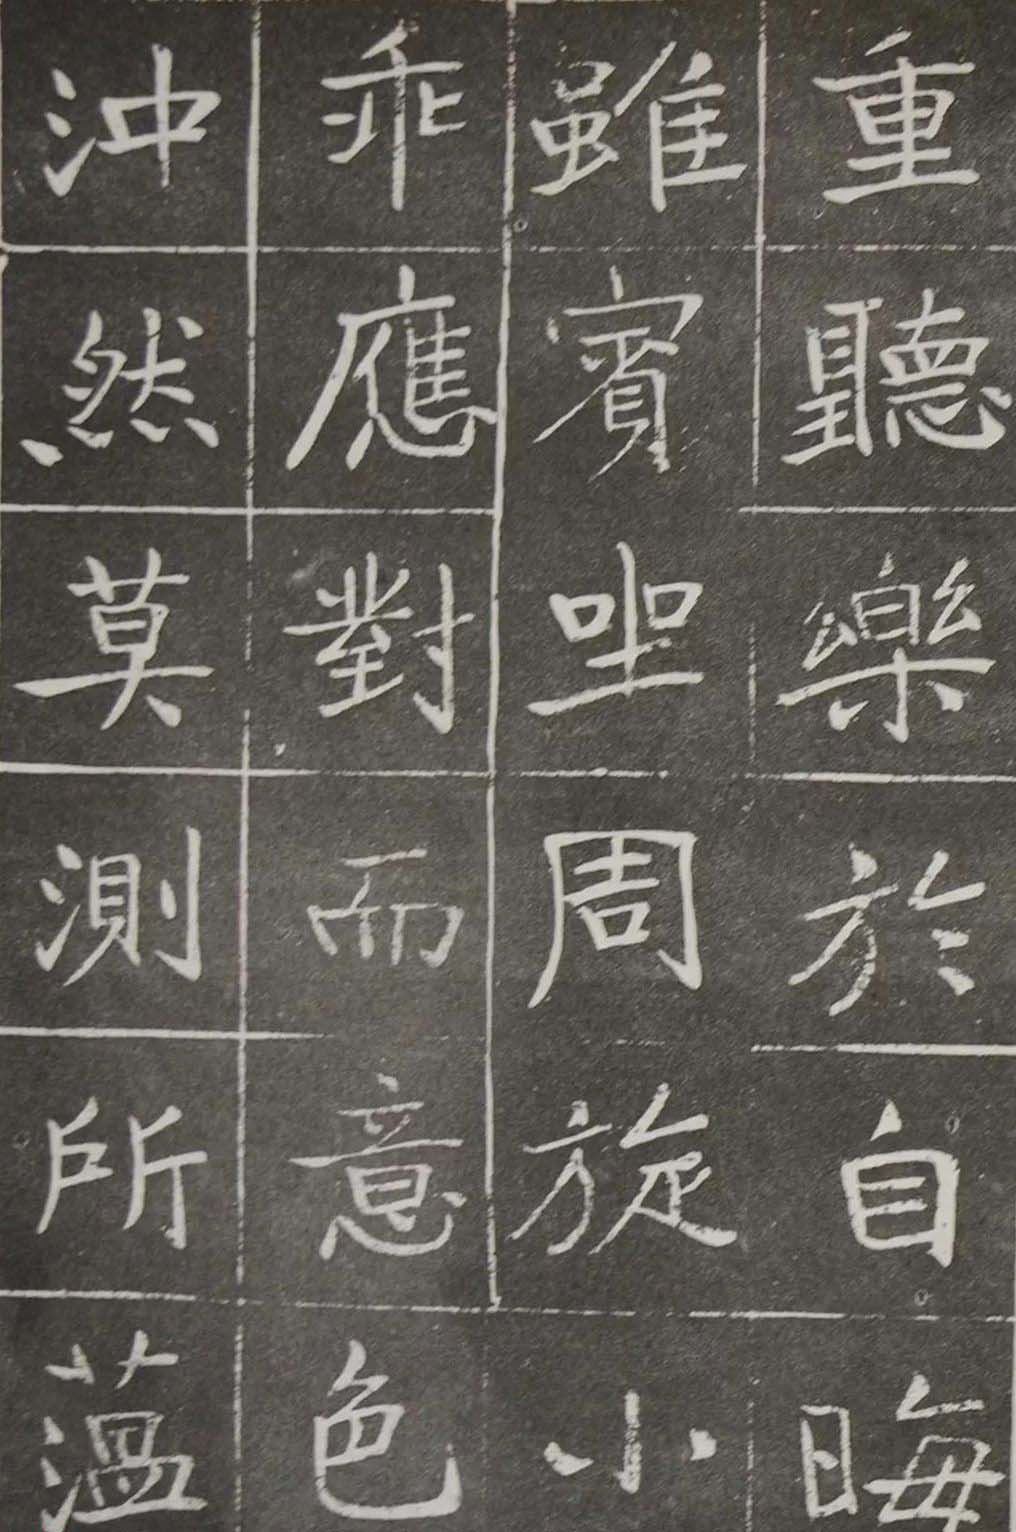 重聽樂於自晦
雖賓坐周旋小
乖應對而意色
沖然莫測所薀